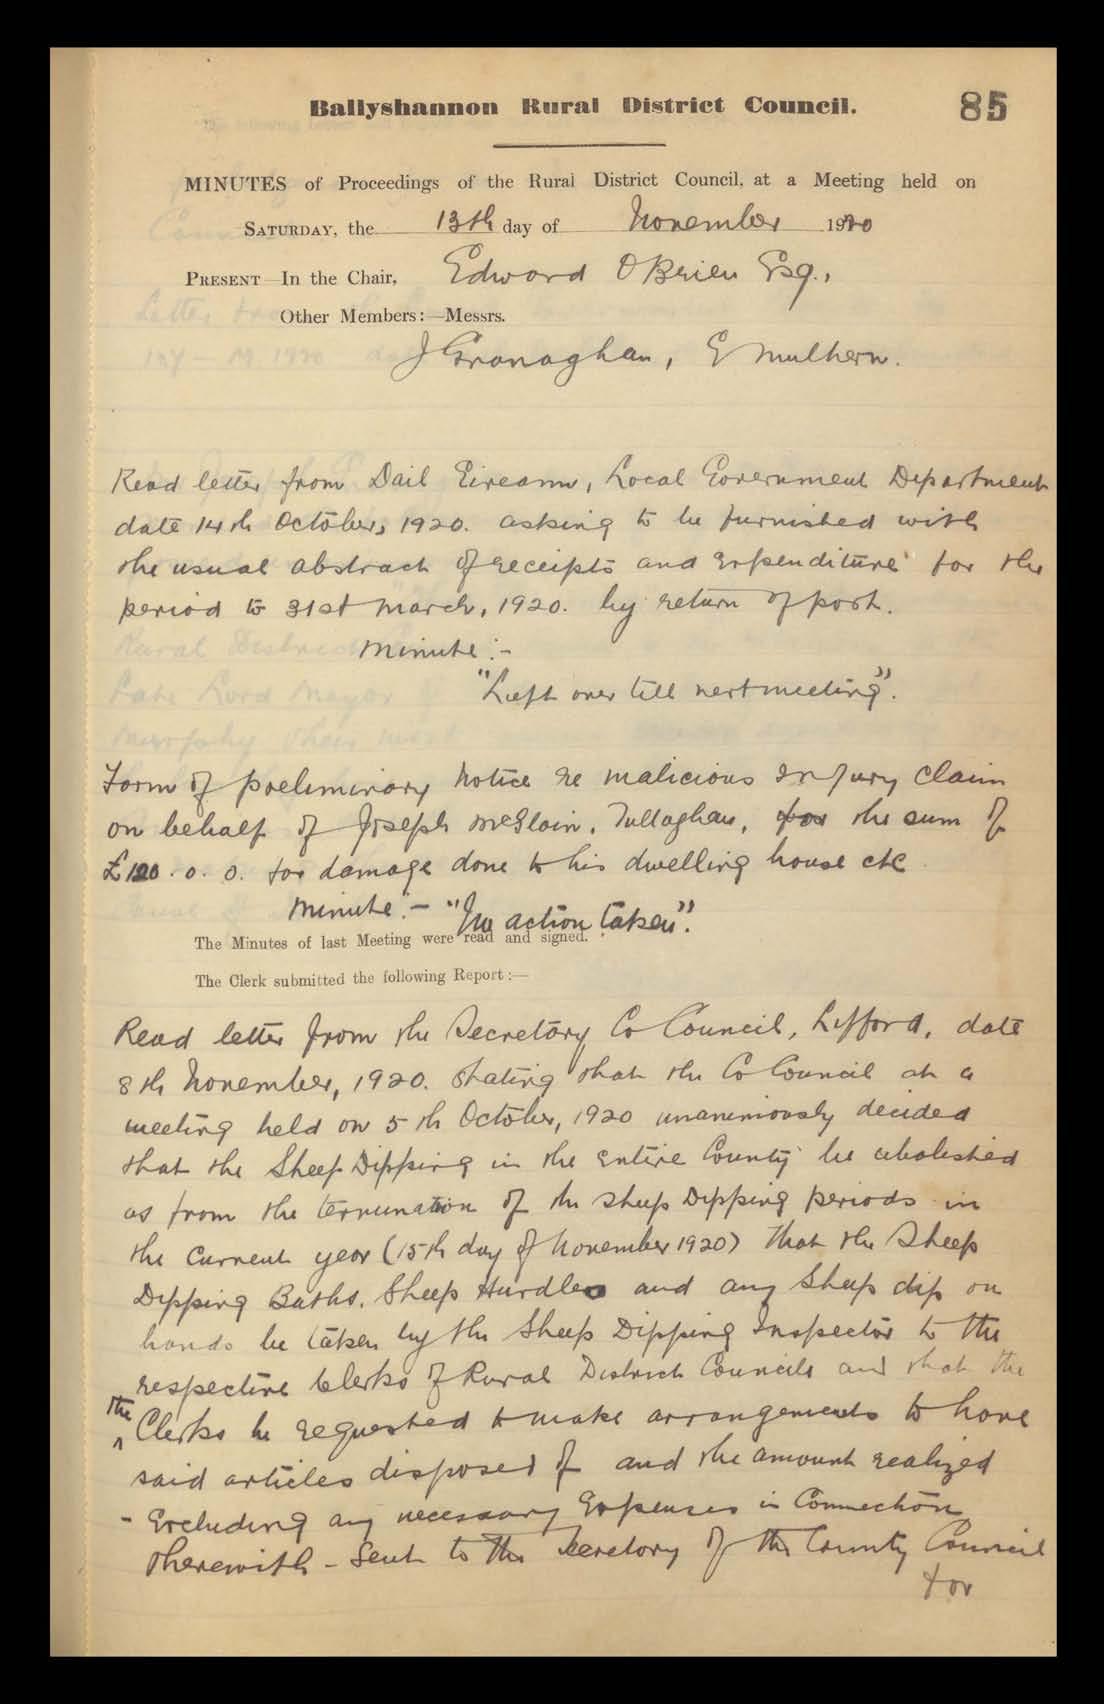 Ballyshannon Rural District Council.
85
MINUTES of Proceedings of the Rural District Council, at a Meeting held on
SATURDAY, the 13th day of November 1920
PRESENT—In the Chair, Edward O'Brien Esq.,
Other Members:—Messrs.
J Gronaghan, E Mulhern.
Read letter from Dail Eireann, Local Government Department
date 14th October, 1920. asking to be furnished with
the usual abstract of receipts and expenditure for the
period to 31st March, 1920. by return of post.
Minute:-
"Left over till next meeting".
Form of preliminary notice re malicious Injury claim
on behalf of Joseph McGloin, Tullaghan, for the sum of
£120. 0. 0. for damage done to his dwelling house etc
Minute:- "No action taken".
The Minutes of last Meeting were read and signed.
The Clerk submitted the following Report:—
Read letter from the Secretary Co Council, Lifford, date
8th November, 1920. stating that the Co Council at a
meeting held on 5th October, 1920 unanimously decided
that the Sheep Dipping in the entire County be abolished
as from the termination of the Sheep Dipping periods in
the current year (15th day of November 1920) That the Sheep
Dipping Baths, Sheep Hurdles and any Sheep dip on
hands be taken by the Sheep Dipping Inspector to the
respective Clerks of Rural District Councils and that the
the
Clerks be requested to make arrangements to have
said articles disposed of and the amount realized
- Excluding any necessary Expenses in Connection
therewith - Sent to the Secretary of the County Council
for